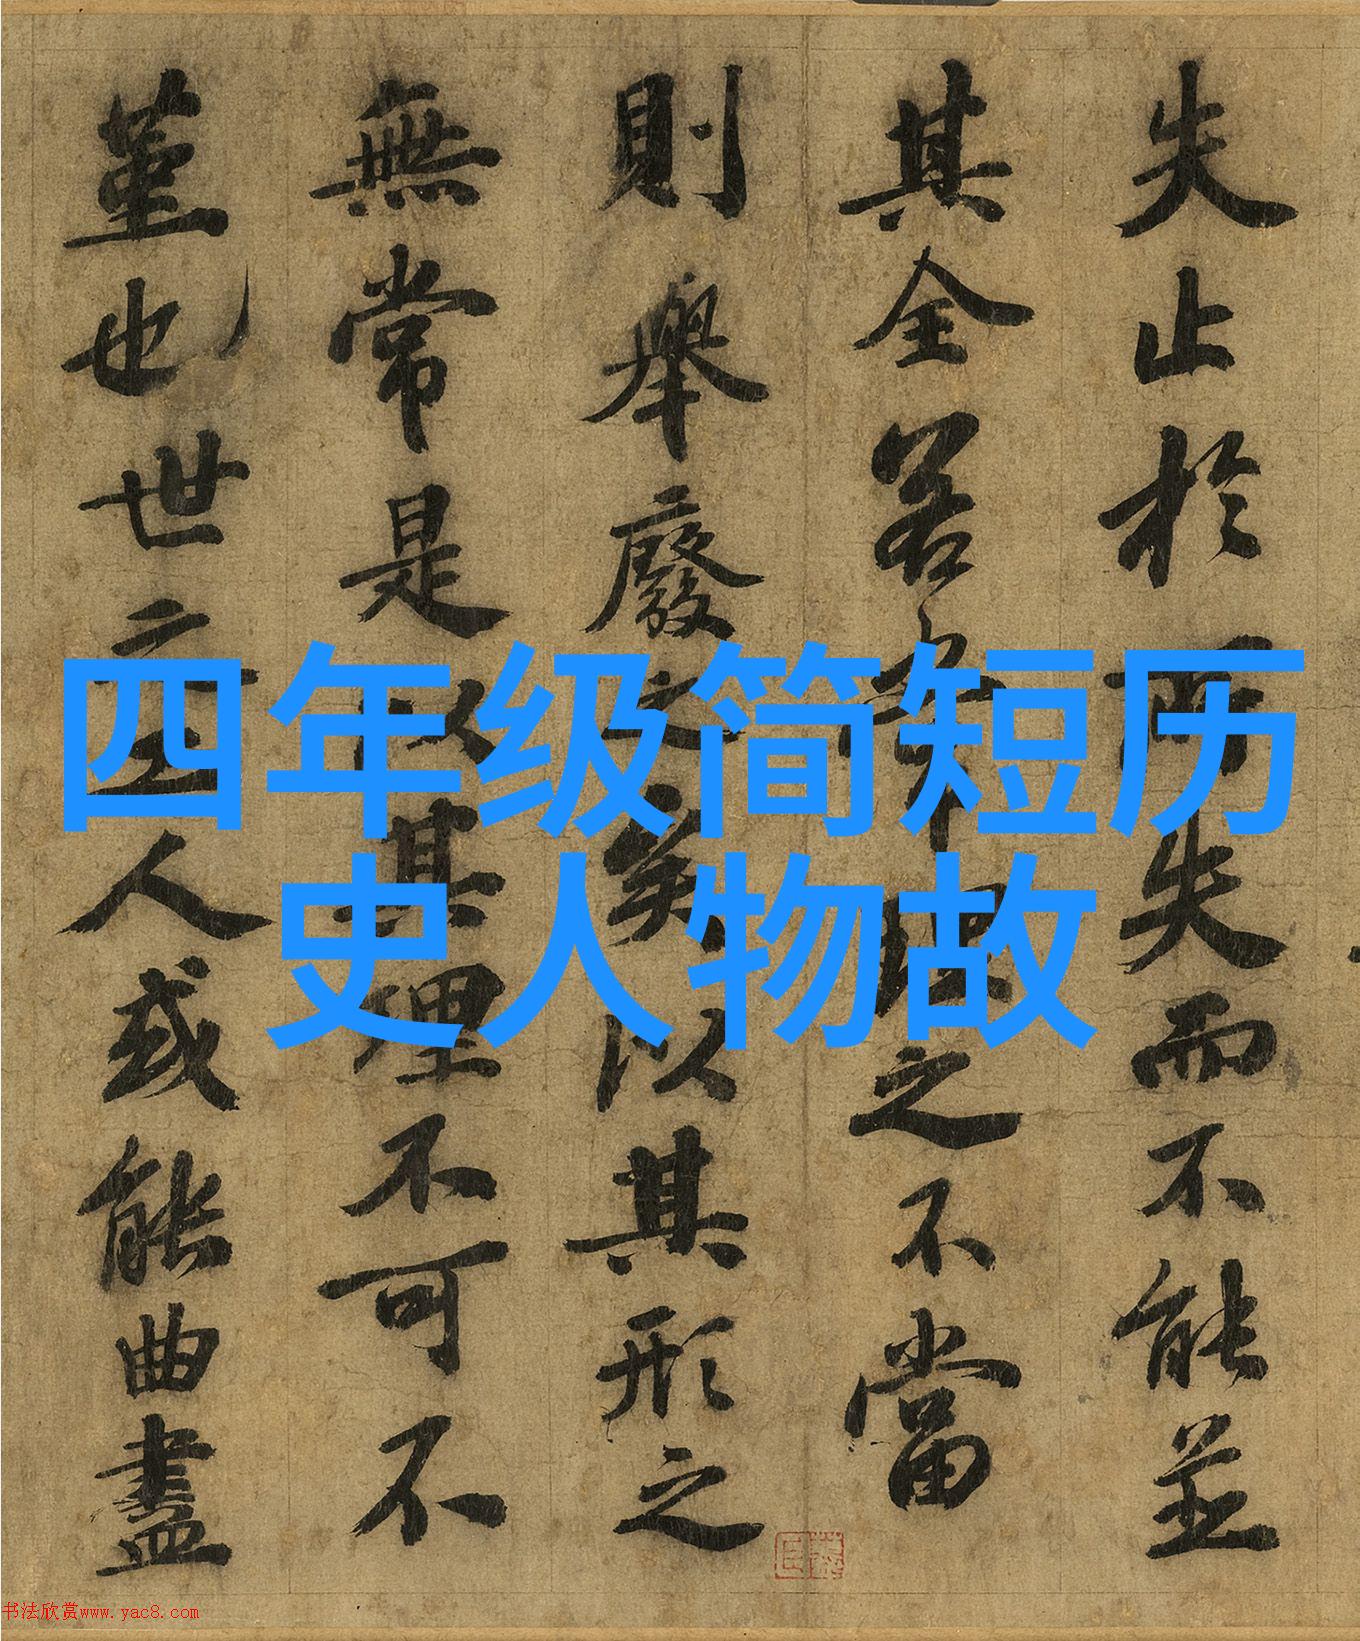 四年级简短历
史人物故
失止於所失而不能並
其全若常理之不當
則舉廢之矣以其形之
無常是以其理不可不
堇也世之工人或能曲盡
书法欣赏www.yac8.com